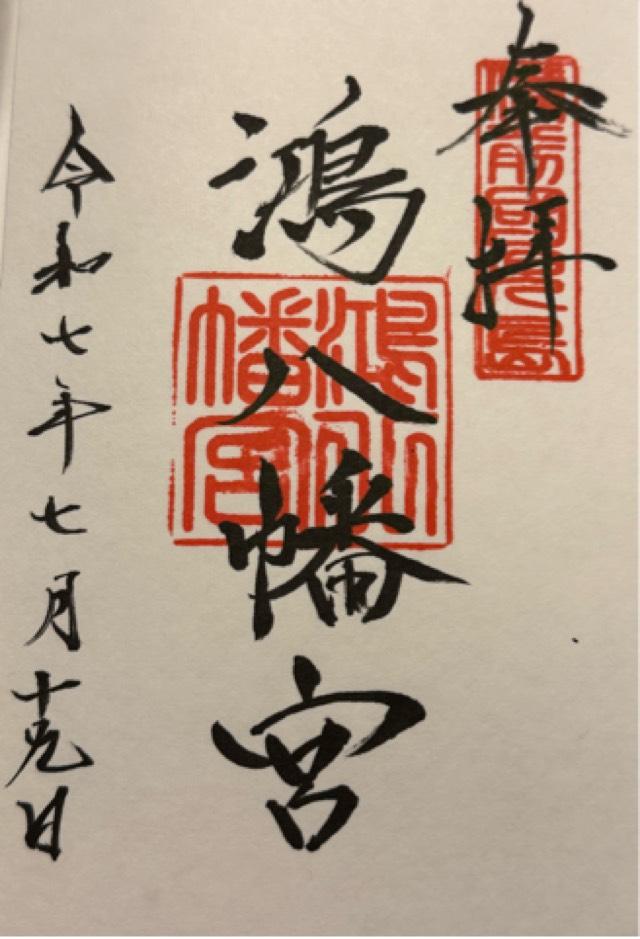 奉拝
備前國児島
鴻八幡宮
鴻八幡宮
令和七年七月十九日